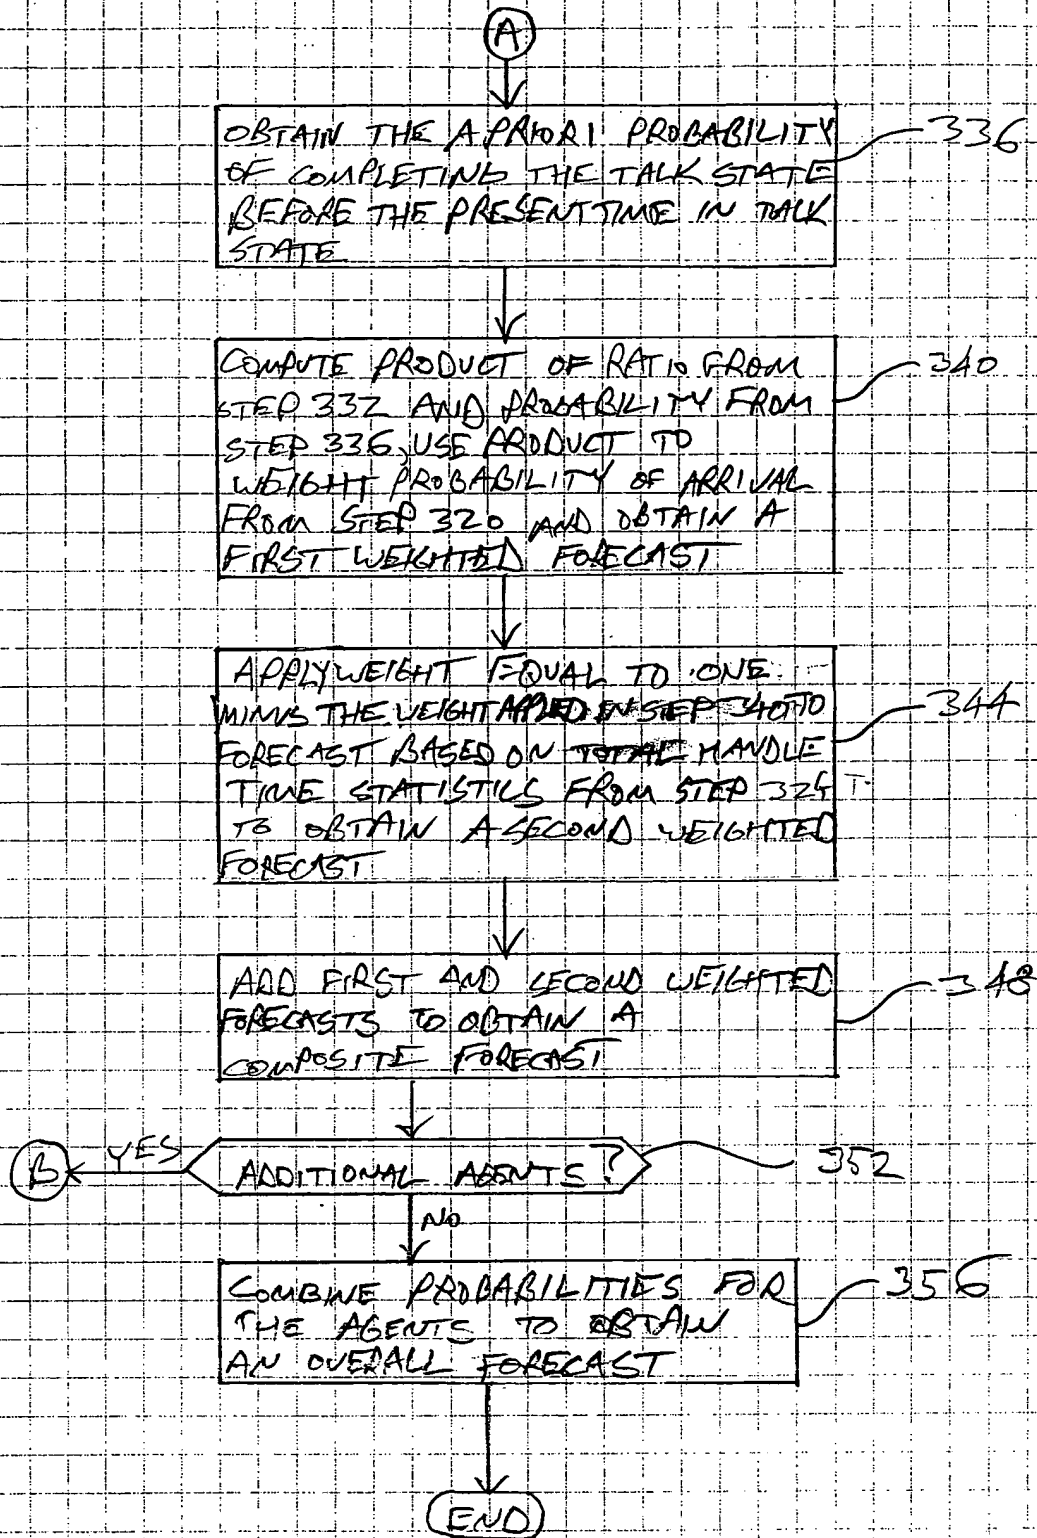 A
OBTAIN THE A PRIORI PROBABILITY
OF COMPLETING THE TALK STATE
BEFORE THE PRESENT TIME IN TALK
STATE
336
COMPUTE PRODUCT OF RATIO FROM
STEP 332 AND PROBABILITY FROM
STEP 336, USE PRODUCT TO
WEIGHT PROBABILITY OF ARRIVAL
FROM STEP 320 AND OBTAIN A
FIRST WEIGHTED FORECAST
340
APPLY WEIGHT EQUAL TO ONE
MINUS THE WEIGHT APPLIED IN STEP 340 TO
FORECAST BASED ON TOTAL HANDLE
TIME STATISTICS FROM STEP
TO OBTAIN A SECOND WEIGHTED
FORECAST
344
ADD FIRST AND SECOND WEIGHTED
FORECASTS TO OBTAIN A
COMPOSITE FORECAST
348
B
YES
ADDITIONAL AGENTS?
352
NO
COMBINE PROBABILITIES FOR
THE AGENTS TO OBTAIN
AN OVERALL FORECAST
356
END